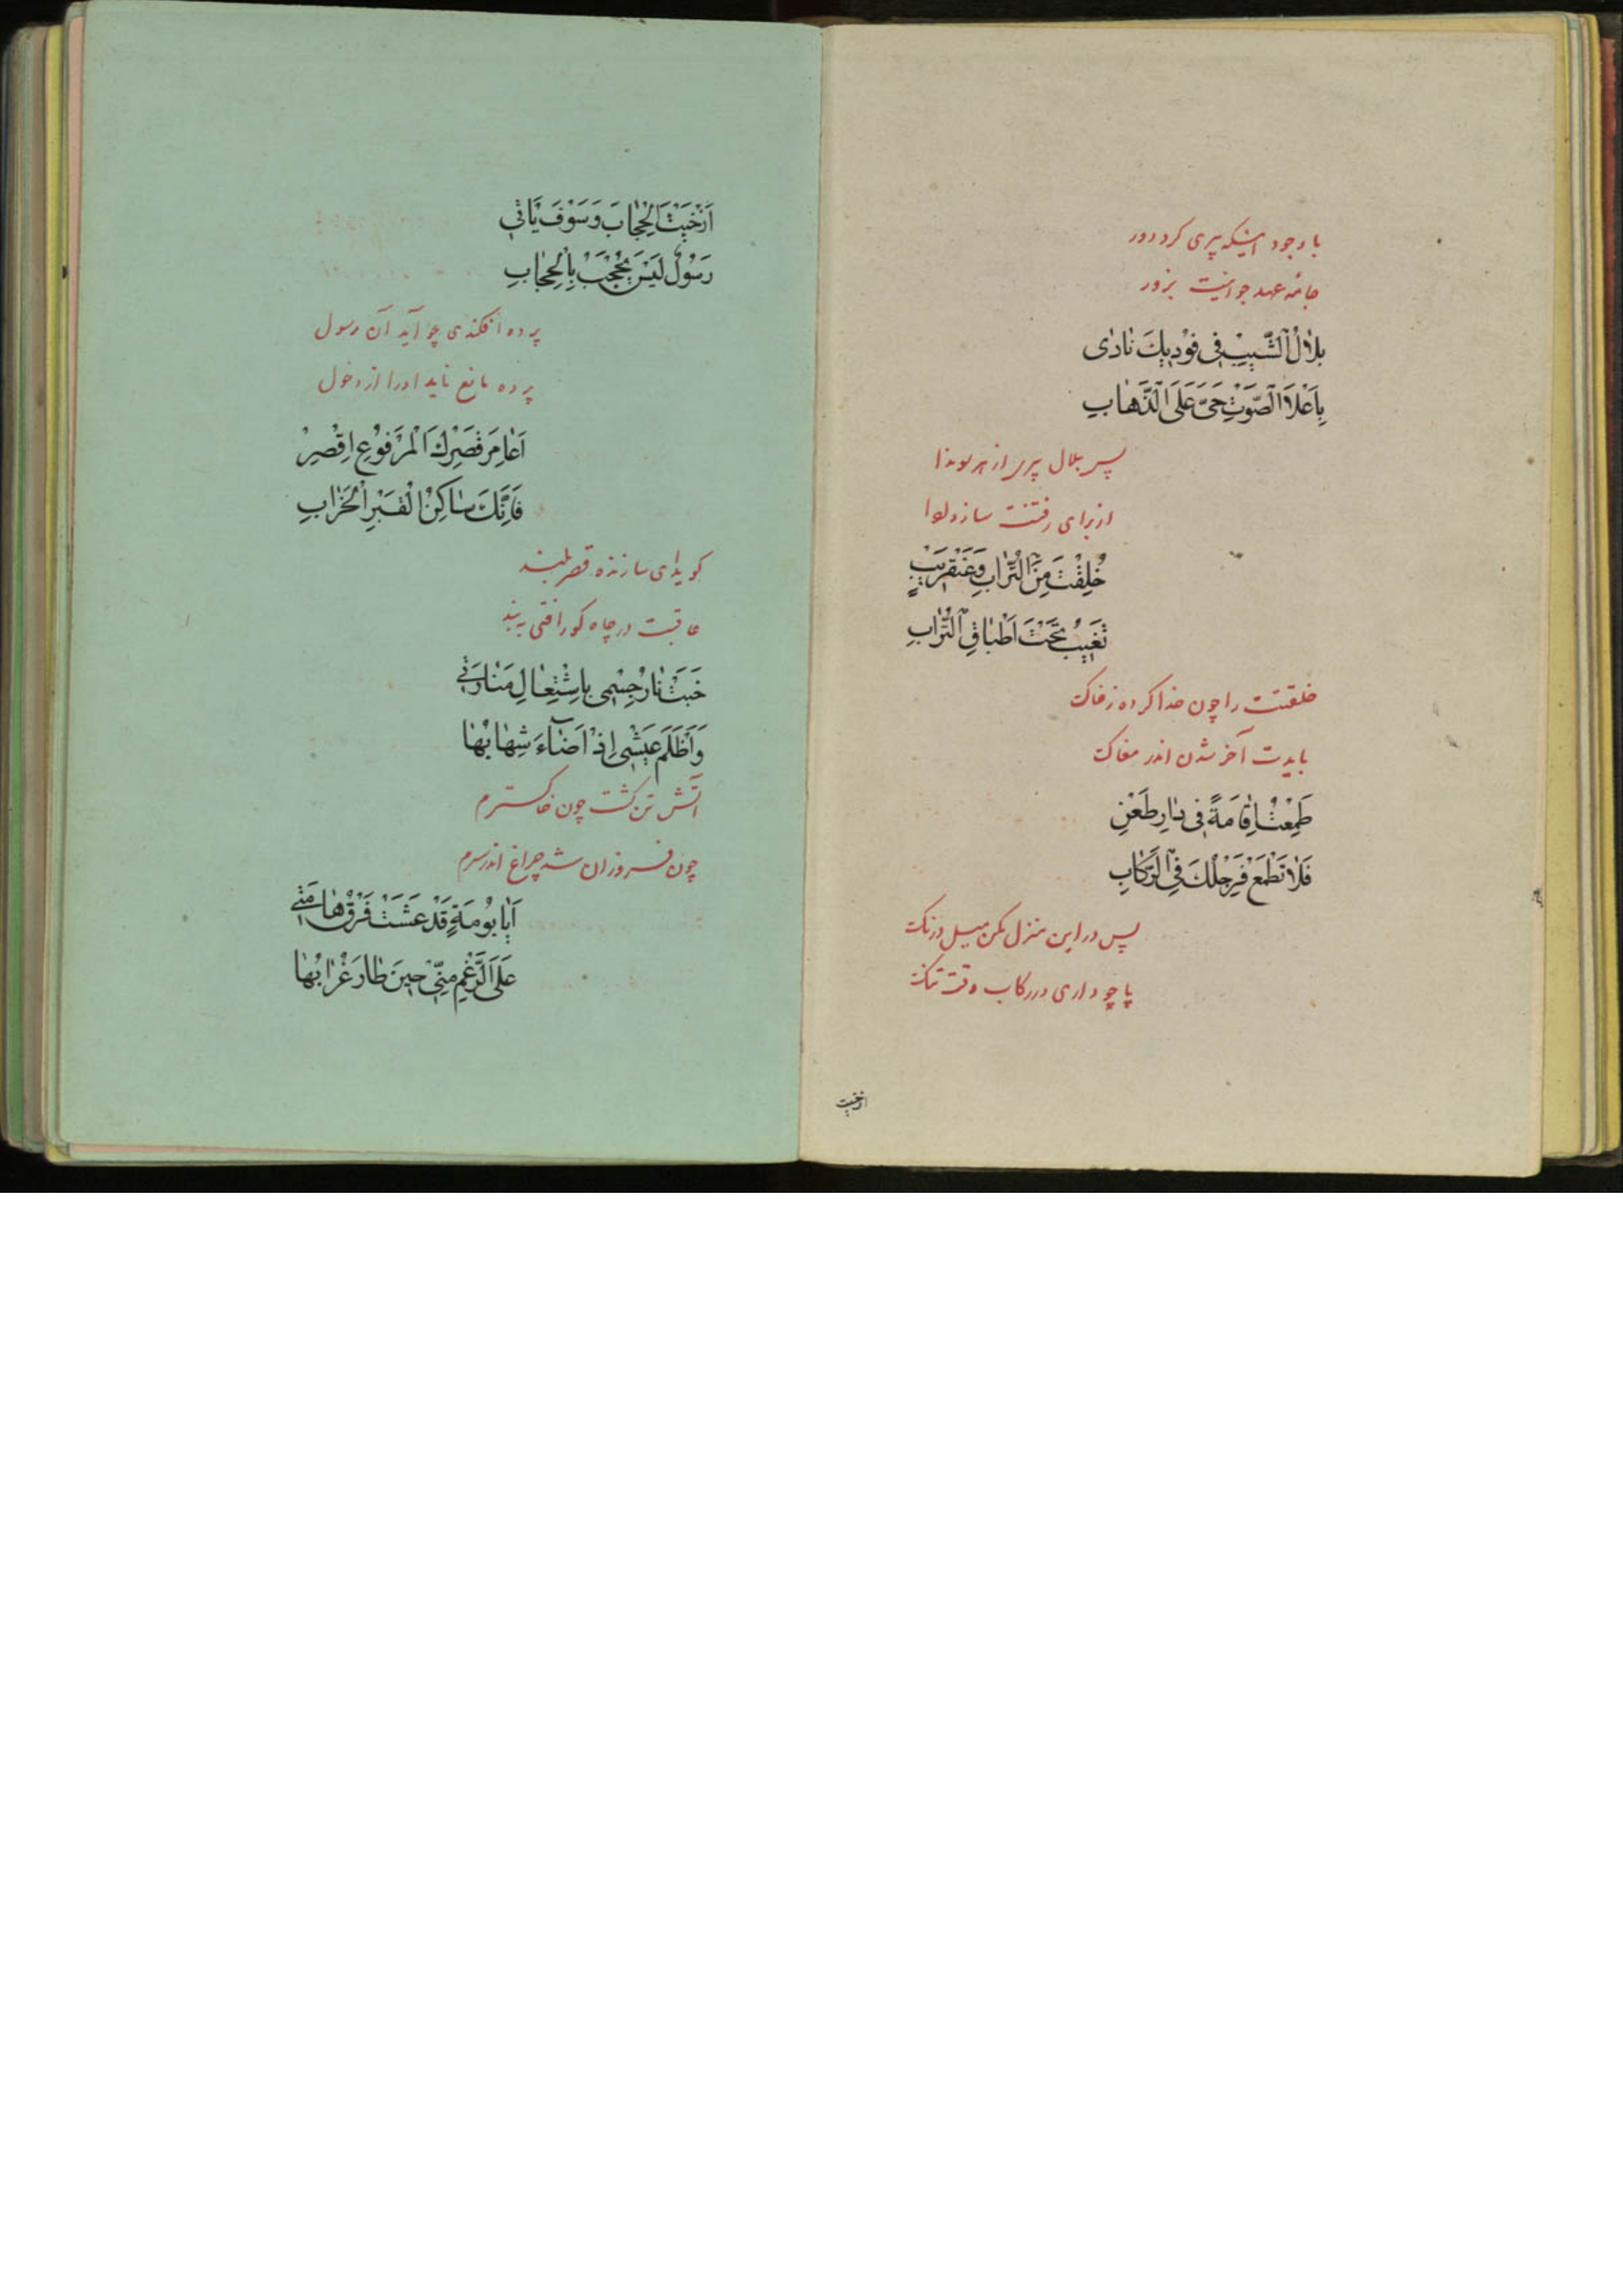 با وجود اینکه پیری کرد دور
جامه عهد جوانیت بزور
بِلٰالُ الشَّيْبِ فِي فَوْدَيْكَ نٰادٰى
بِاَعْلَا الصَّوْتِ حَيَّ عَلَى الذَّهٰابِ
پس بلال پیری از هر سو ندا
از برای رفتنت سازد لوا
خُلِقْتَ مِنَ التُّرٰابِ وَعَنْقَرِيبٍ
تَغَيبُ تَحْتَ اَطْبٰاقِ التُّرٰابِ
خلقتت را چون خدا کرده ز خاک
بایدت آخر شدن اندر مغاک
طَمِعْتَ اِقٰامَةً فِي دٰارِ ظَعْنٍ
فَلٰا تَطْمَعْ فَرِجْلُكَ فِي الرِّكٰابِ
پس در این منزل مکن میل درنگ
پا چو داری در رکاب وقت تنگ
ارخیت
اَرْخَيْتَ الْحِجٰابَ وَسَوْفَ يَأتي
رَسُولٌ لَيْسَ يُحْجَبُ بِالْحِجٰابِ
پرده افکندی چو آید آن رسول
پرده مانع ناید او را از دخول
اَعٰامِرَ قَصْرِكَ الْمَرْفُوعِ اِقْصِرْ
فَاِنَّكَ سٰاكِنُ الْقَبْرِ الْخَرٰابِ
کوید ای سازنده قصر بلند
عاقبت در چاه کور افتی ببند
خَبَتْ نٰارُ جِسْمِي بِاشْتِعٰالِ مَفٰارِقي
وَاَظْلَمَ عَيْشِي اِذْ اَضٰاءَ شِهٰابُهٰا
آتش تن کشت چون خاکسترم
چون فروزان شد چراغ اندر سرم
اَيٰا بُومَةٍ قَدْ عَشَّشَتْ فَوْقَ هٰامَتي
عَلَى الرَّغْمِ مِنّي حينَ طٰارَ غُرٰابُهٰا